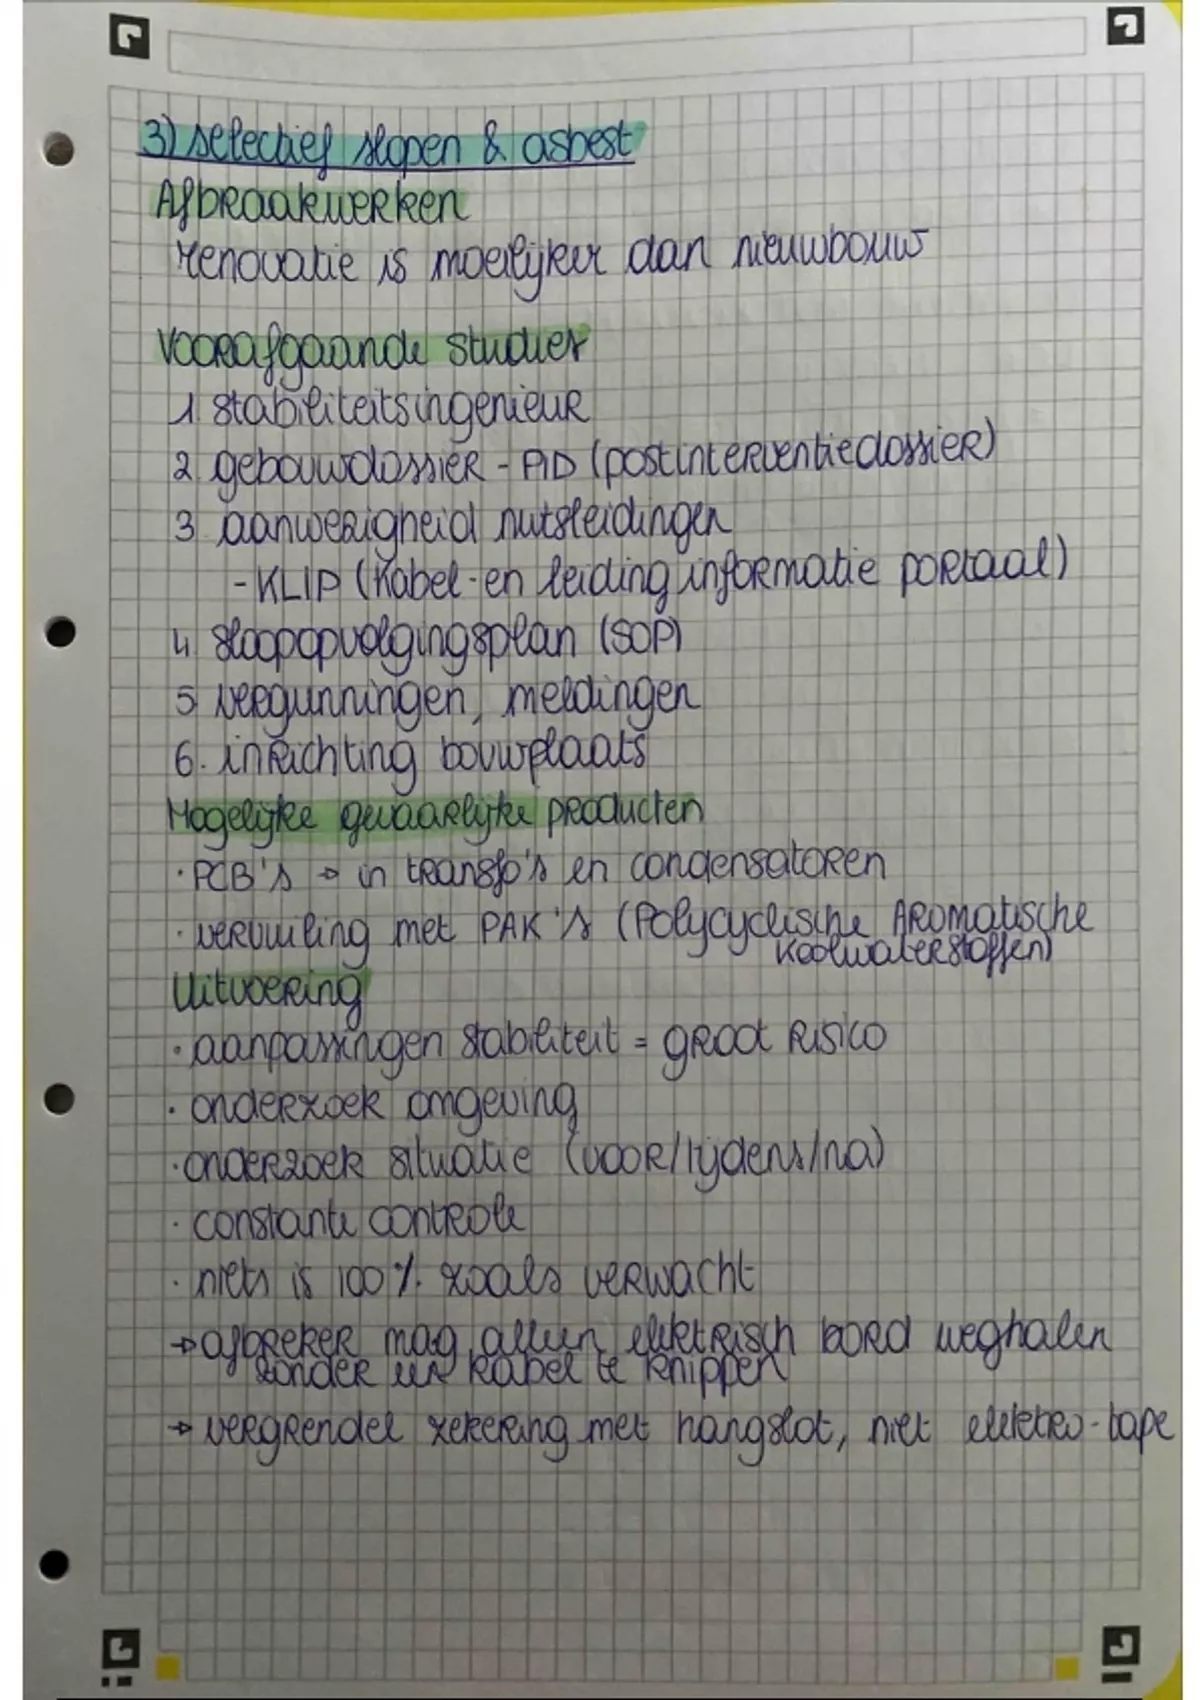 3) selectief slopen & asbest
Afbraakwerken
renovatie is moeilijker dan nieuwbouw
Voorafgaande studies
1. stabiliteitsingenieur
2. gebouwdossier - PID (postinterventiedossier)
3. aanwezigheid nutsleidingen
- KLIP (Kabel- en leiding informatie portaal)
4. sloopopvolgingsplan (SOP)
5. vergunningen, meldingen
6. inrichting bouwplaats
Mogelijke gevaarlijke producten
· PCB's → in transfo's en condensatoren
· vervuiling met PAK's (Polycyclische Aromatische
Koolwaterstoffen)
Uitvoering
· aanpassingen stabiliteit = groot risico
· onderzoek omgeving
· onderzoek situatie (voor/tijdens/na)
· constante controle
· niets is 100% zoals verwacht
→ afbreker mag alleen elektrisch bord weghalen
zonder een kabel te knippen
→ vergrendel zekering met hangslot, niet elektro-tape